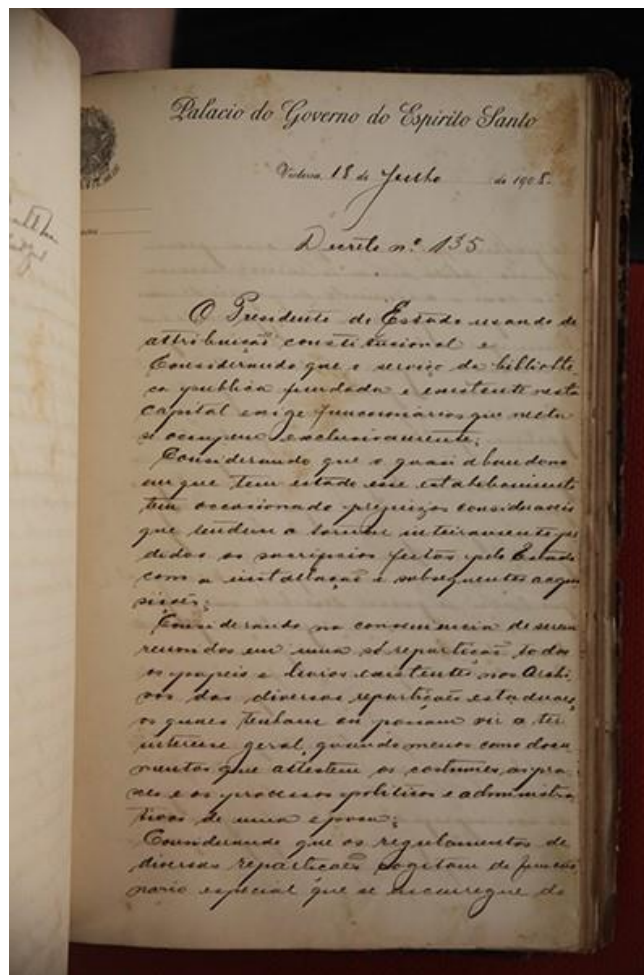 Palacio do Governo do Espirito Santo
Victoria, 18 de Julho de 1908.
Decreto nº 135
O Presidente do Estado usando de
attribuição constitucional e
Considerando que o serviço da bibliothe-
ca publica fundada e existente nesta
capital exige funccionarios que nella
se occupem exclusivamente;
Considerando que o quasi abandono
em que tem estado esse estabelecimento
tem occasionado prejuizos consideraveis
que tendem a tornar inteiramente per
didos os sacrificios feitos pelo Estado
com a installação e subsequentes acqui
sições;
Considerando na conveniencia de serem
reunidos em uma só repartição todos
os papeis e livros existentes nos Archi
vos das diversas repartições estaduaes,
os quaes tenham ou possam vir a ter
interesse geral, quando menos como docu
mentos que attestem os costumes, as pra
xes e os processos politicos e administra
tivos de uma epoca;
Considerando que os regulamentos de
diversas repartições cogitam de funccio
nario especial que se encarregue do